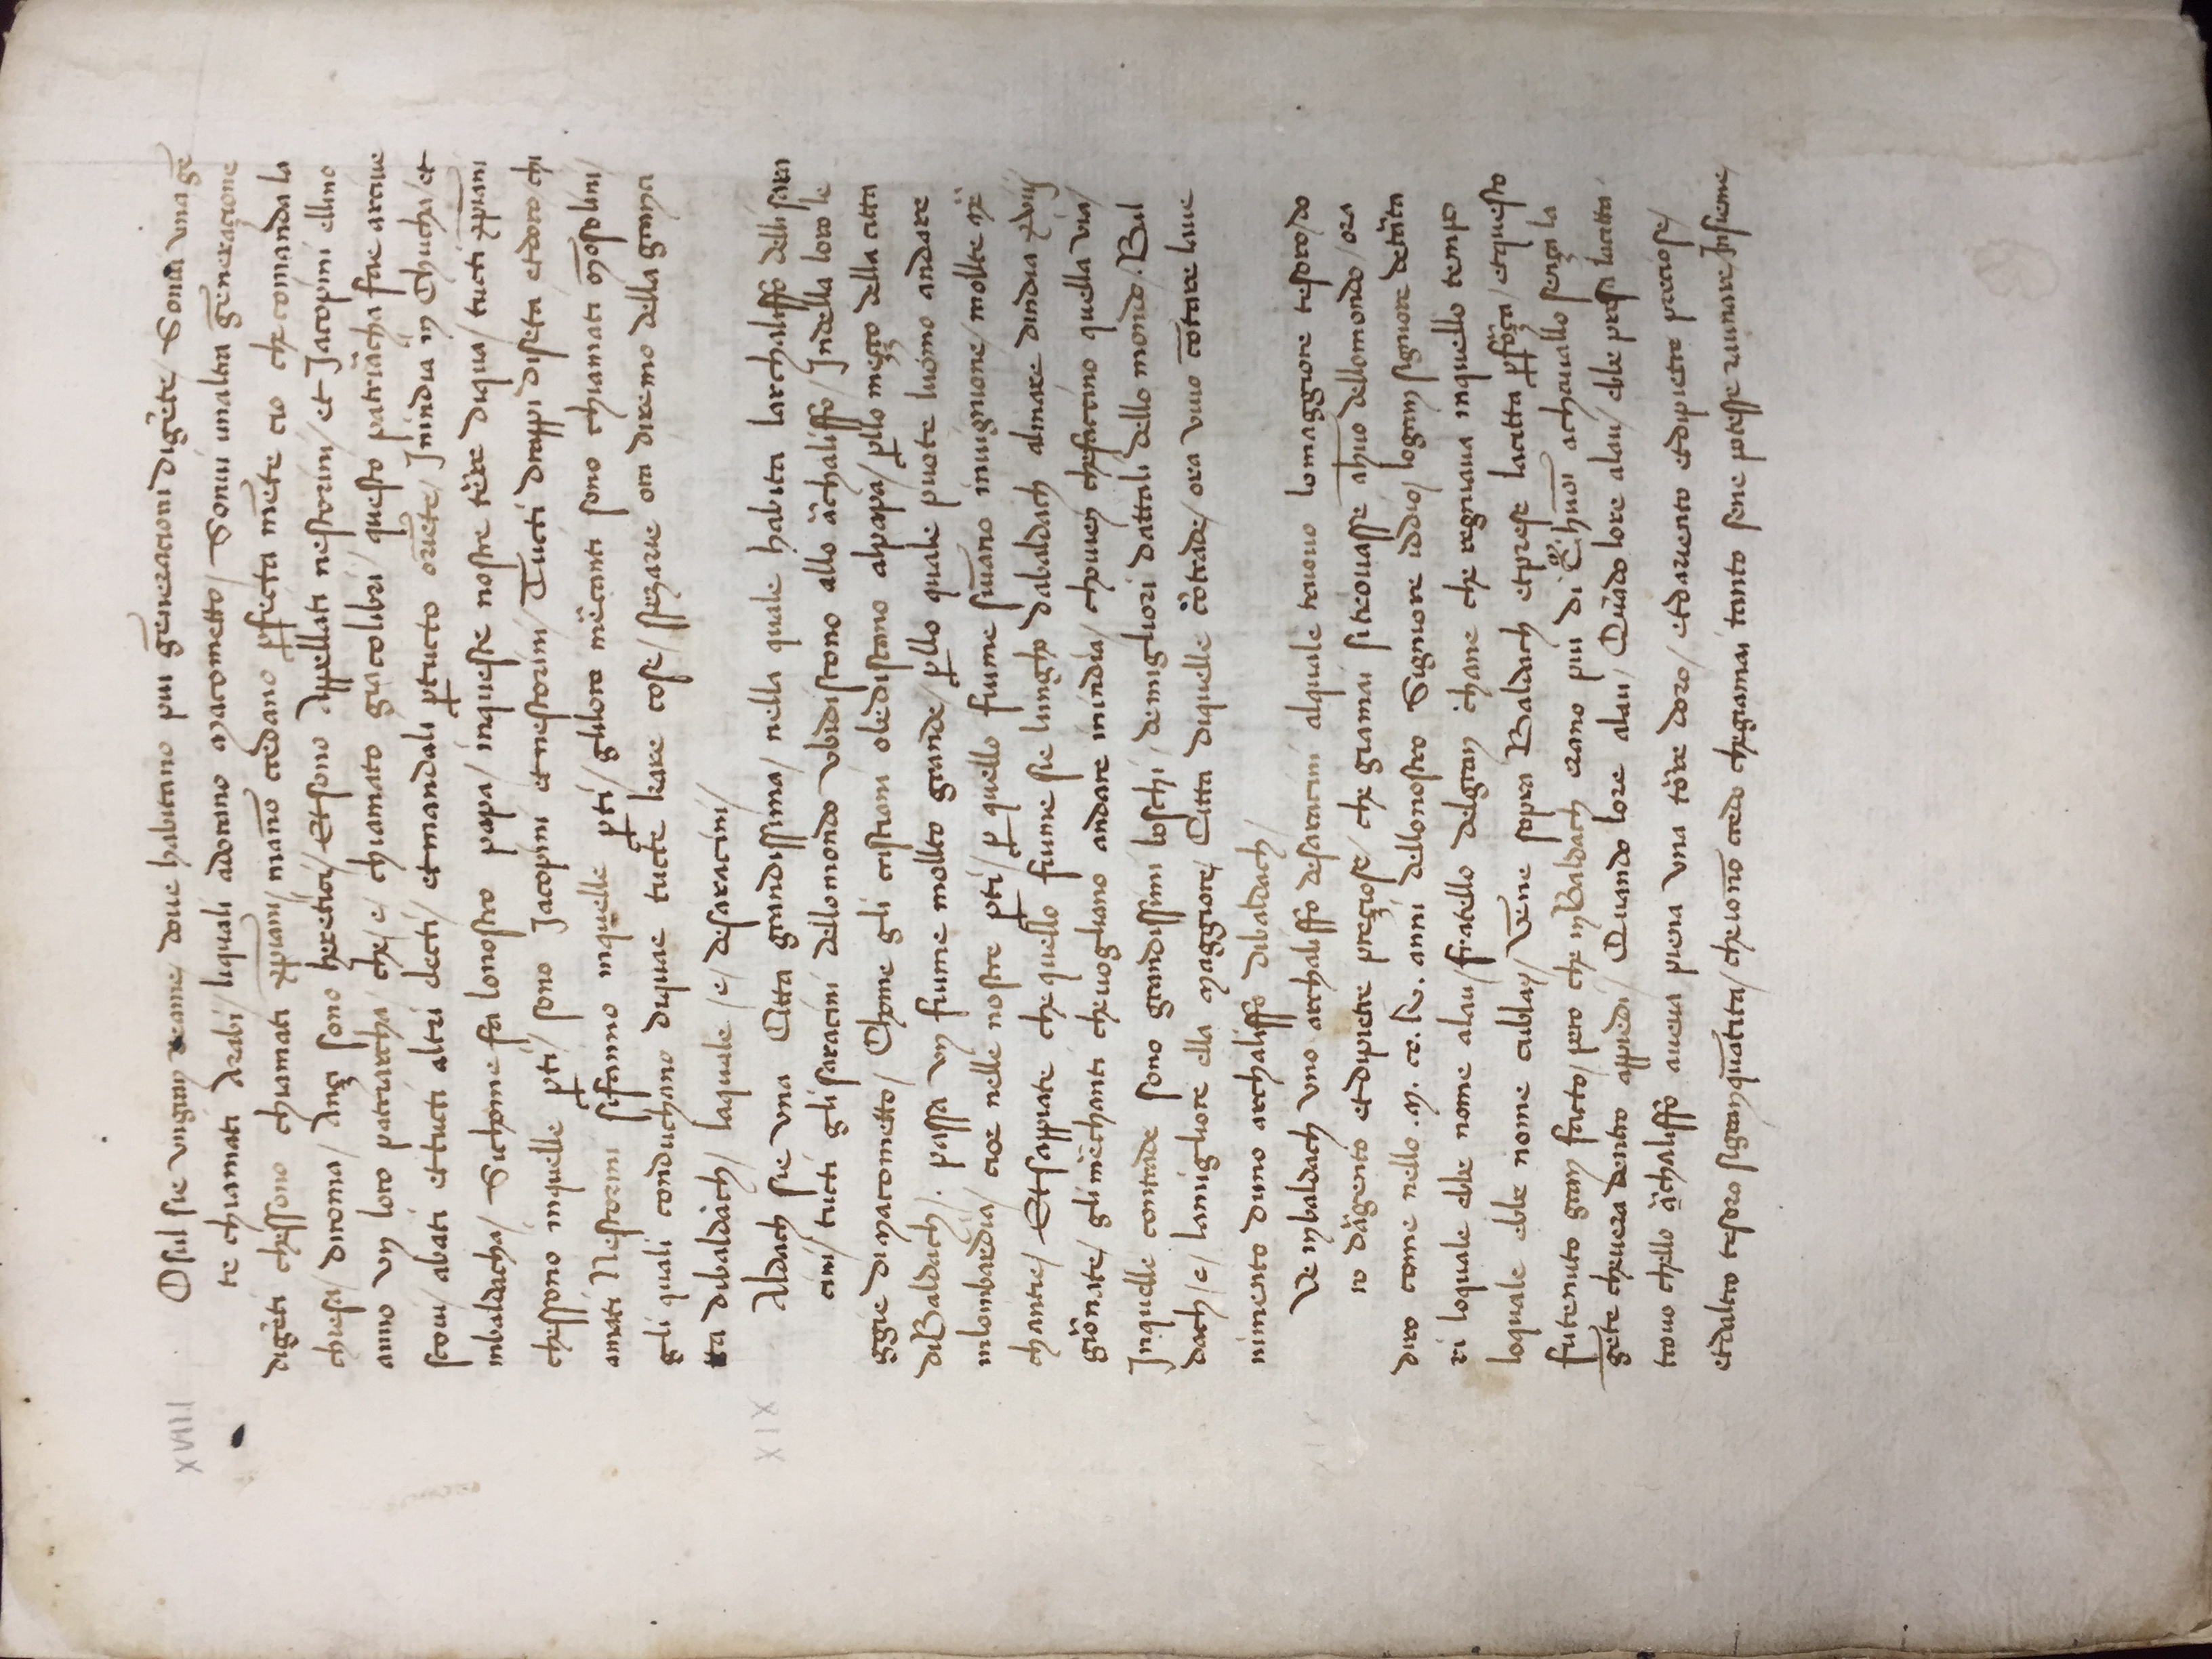 XVIII
Osul sie vngran reame / doue habitano piu gēneracioni digēte / Sonui vna gē
te chiamati Arabi / liquali adorano macometto / Sonui unaltra gēneraçione
digēti chessono chiamati xp̄iani / manō credano ꝑfecta mēte cio che comanda la
chiesa / diroma / Ançi sono heretici / Et sono Appellati nestorini / et Jacopini ellino
anno vn loro patriarcha / che / e / chiamato giacolibri / questo patriācha fae arciue
scoui / abati et tucti altri electi / et mandali ꝑtucto oriēte / Jnindia in Chucha / et
inbaldacha / Sichome fa lonostro papa / inqueste nostre tēre diqua / tucti xp̄iani
chessono inquelle ꝑti / sono Jacopini et nestorini / Tucti drappi diseta et doro / chi
amati Nestorini sifanno inquelle ꝑti / gliloro mēcanti sono chiamati mōsolini /
gli quali conduchano diquae tucte kare cose / spezarie ora diremo della granci
tta dibaldach / laquale / e / desaracini /
XIX
Aldach sie vna Citta grandissima / nella quale habita larchaliffo delli sara
cini / tucti gli saracini dellomondo vbidiscono allo āchaliffo / Jndella loro le
ggie di macometto / Chome gli cristiani obediscano alpapa / ꝑllo meçço della citta
diBaldach / . passa vn fiume mollto grande / ꝑllo quale puote luomo andare
inlombardia / cioe nelle nostre ꝑti / ꝑ quello fiume siuāno inuignione / mollte mē
chantie / Et sappiate che quello fiume sie lungho dabaldach almare dindia xviij
giōnate / gli mēchanti chevogliano andare inindia / chouien chefaccino quella via /
Jnquelle contrade sono grandissimi boschi / de migliori dattali dello mondo . Bal
dach / e / lamigliore ella maggiore / Citta diquelle cōtrade / ora vuio cōtare laue
nimento duno archaliffo dibaldach /
Ve inbaldach vno archaliffo desaracini alquale truouo lomaggiore tesoro / do
ro dāgento et dipietre preçiose / che giamai sitrovasse ahuo dellomondo / ora
diro come nello .m. cc. lv. anni dellonostro Signiore iddio / logran signiore detāta
ri loquale ebbe nome alau / fratello delgran chane che regniaua inquello tempo
loquale ebbe nome cublay / Vēne sopra Baldach et prese lacitta ꝑfōça / et questo
futenuto gran facto / pero che inBaldach erano piu di C huōi achauallo sença la
gēte chevera dentro appiedi / Quando lore alau / Quādo lore alau / ebbe presa lacitta
trouo chello āchaliffo aueua piena vna tōre doro / et dariento et dipietre preciose /
et daltro tesoro sigranquātita / che iono credo chegiamai tanto sene potesse raunare Jnsieme /